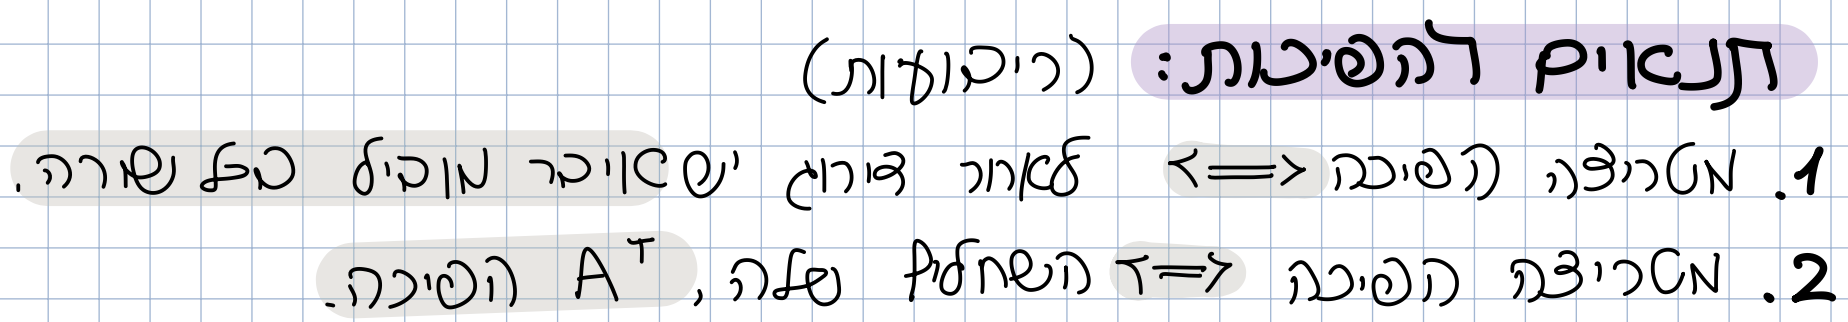 תנאים להפיכות: (ריבועות)
1. מטריצה הפיכה <=> לאחר דירוג יש איבר מוביל בכל שורה.
2. מטריצה הפיכה <=> השחלוף שלה, Aᵀ הפיכה.